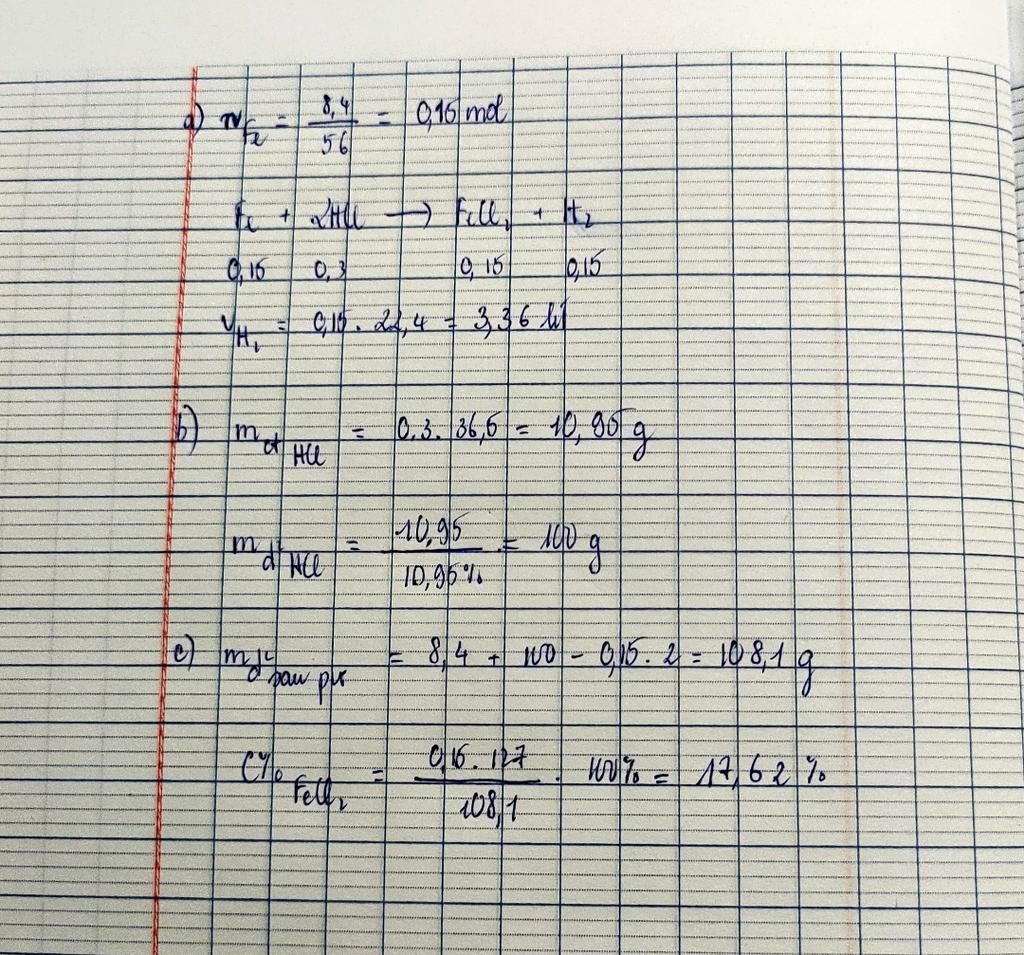 a) n Fe = 8,4 / 56 = 0,15 mol
Fe + 2HCl → FeCl2 + H2
0,15 0,3 0,15 0,15
V H2 = 0,15 . 22,4 = 3,36 lít
b) m ct HCl = 0,3 . 36,5 = 10,95 g
m dd HCl = 10,95 / 10,95% = 100 g
c) m dd sau pư = 8,4 + 100 - 0,15 . 2 = 108,1 g
C% FeCl2 = 0,15 . 127 / 108,1 . 100% = 17,62 %